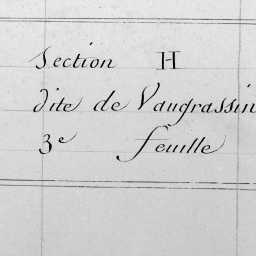 Section H
dite de Vaugrassin
3e feuille